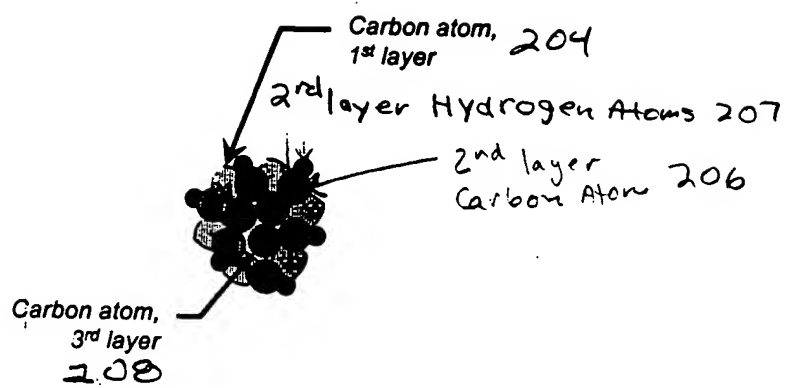 Carbon atom, 204
1st layer
2nd layer Hydrogen Atoms 207
2nd layer
Carbon Atom 206
Carbon atom,
3rd layer
208